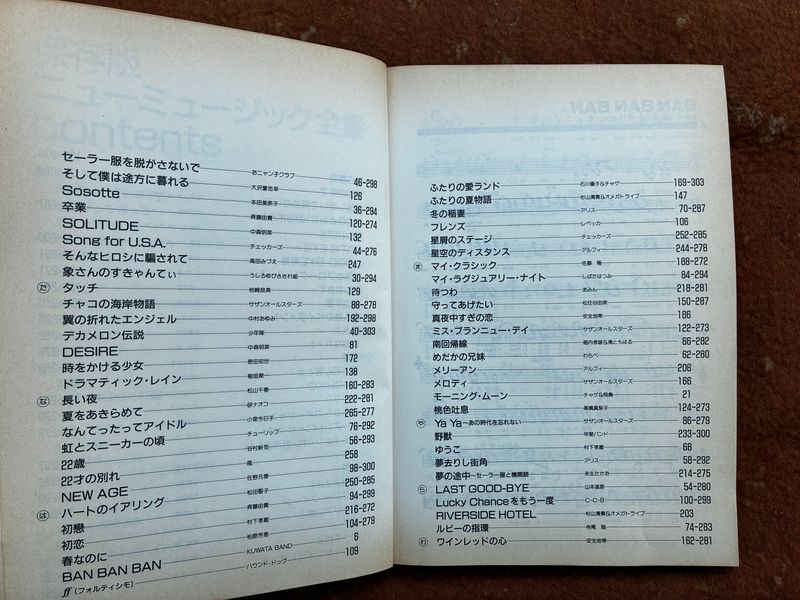 保存版
ニューミュージック全集
contents
セーラー服を脱がさないで おニャン子クラブ 46-298
そして僕は途方に暮れる 大沢誉志幸 126
Sosotte 本田美奈子 36-294
卒業 斉藤由貴 120-274
SOLITUDE 中森明菜 132
Song for U.S.A. チェッカーズ 44-276
そんなヒロシに騙されて 高田みづえ 247
象さんのすきゃんてぃ うしろゆびさされ組 30-294
た タッチ 岩崎良美 129
チャコの海岸物語 サザンオールスターズ 88-278
翼の折れたエンジェル 中村あゆみ 192-298
デカメロン伝説 少年隊 40-303
DESIRE 中森明菜 81
時をかける少女 原田知世 172
ドラマティック・レイン 稲垣潤一 138
な 長い夜 松山千春 160-283
夏をあきらめて 研ナオコ 222-281
なんてったってアイドル 小泉今日子 265-277
虹とスニーカーの頃 チューリップ 76-292
22歳 谷村新司 56-293
22才の別れ 風 258
NEW AGE 佐野元春 98-300
は ハートのイアリング 松田聖子 250-285
初戀 斉藤由貴 94-299
初恋 村下孝蔵 216-272
春なのに 柏原芳恵 104-279
BAN BAN BAN KUWATA BAND 6
ff (フォルティシモ) ハウンド・ドッグ 109
BAN BAN BAN
ふたりの愛ランド 石川優子&チャゲ 169-303
ふたりの夏物語 杉山清貴&オメガトライブ 147
冬の稲妻 アリス 70-287
フレンズ レベッカ 106
星屑のステージ チェッカーズ 252-285
星空のディスタンス アルフィー 244-278
ま マイ・クラシック 佐藤隆 188-272
マイ・ラグジュアリー・ナイト しばたはつみ 84-294
待つわ あみん 218-281
守ってあげたい 松任谷由実 150-287
真夜中すぎの恋 安全地帯 186
ミス・ブランニュー・デイ サザンオールスターズ 122-273
南回帰線 堀内孝雄&滝ともはる 66-282
めだかの兄妹 わらべ 62-280
メリーアン アルフィー 206
メロディ サザンオールスターズ 166
モーニング・ムーン チャゲ&飛鳥 21
桃色吐息 高橋真梨子 124-273
や Ya Ya～あの時代を忘れない サザンオールスターズ 86-279
野獣 甲斐バンド 233-300
ゆうこ 村下孝蔵 68
夢去りし街角 アリス 58-292
夢の途中～セーラー服と機関銃 来生たかお 214-275
ら LAST GOOD-BYE 山本達彦 54-280
Lucky Chanceをもう一度 C-C-B 100-299
RIVERSIDE HOTEL 杉山清貴&オメガトライブ 203
ルビーの指環 寺尾聰 74-283
わ ワインレッドの心 安全地帯 162-281